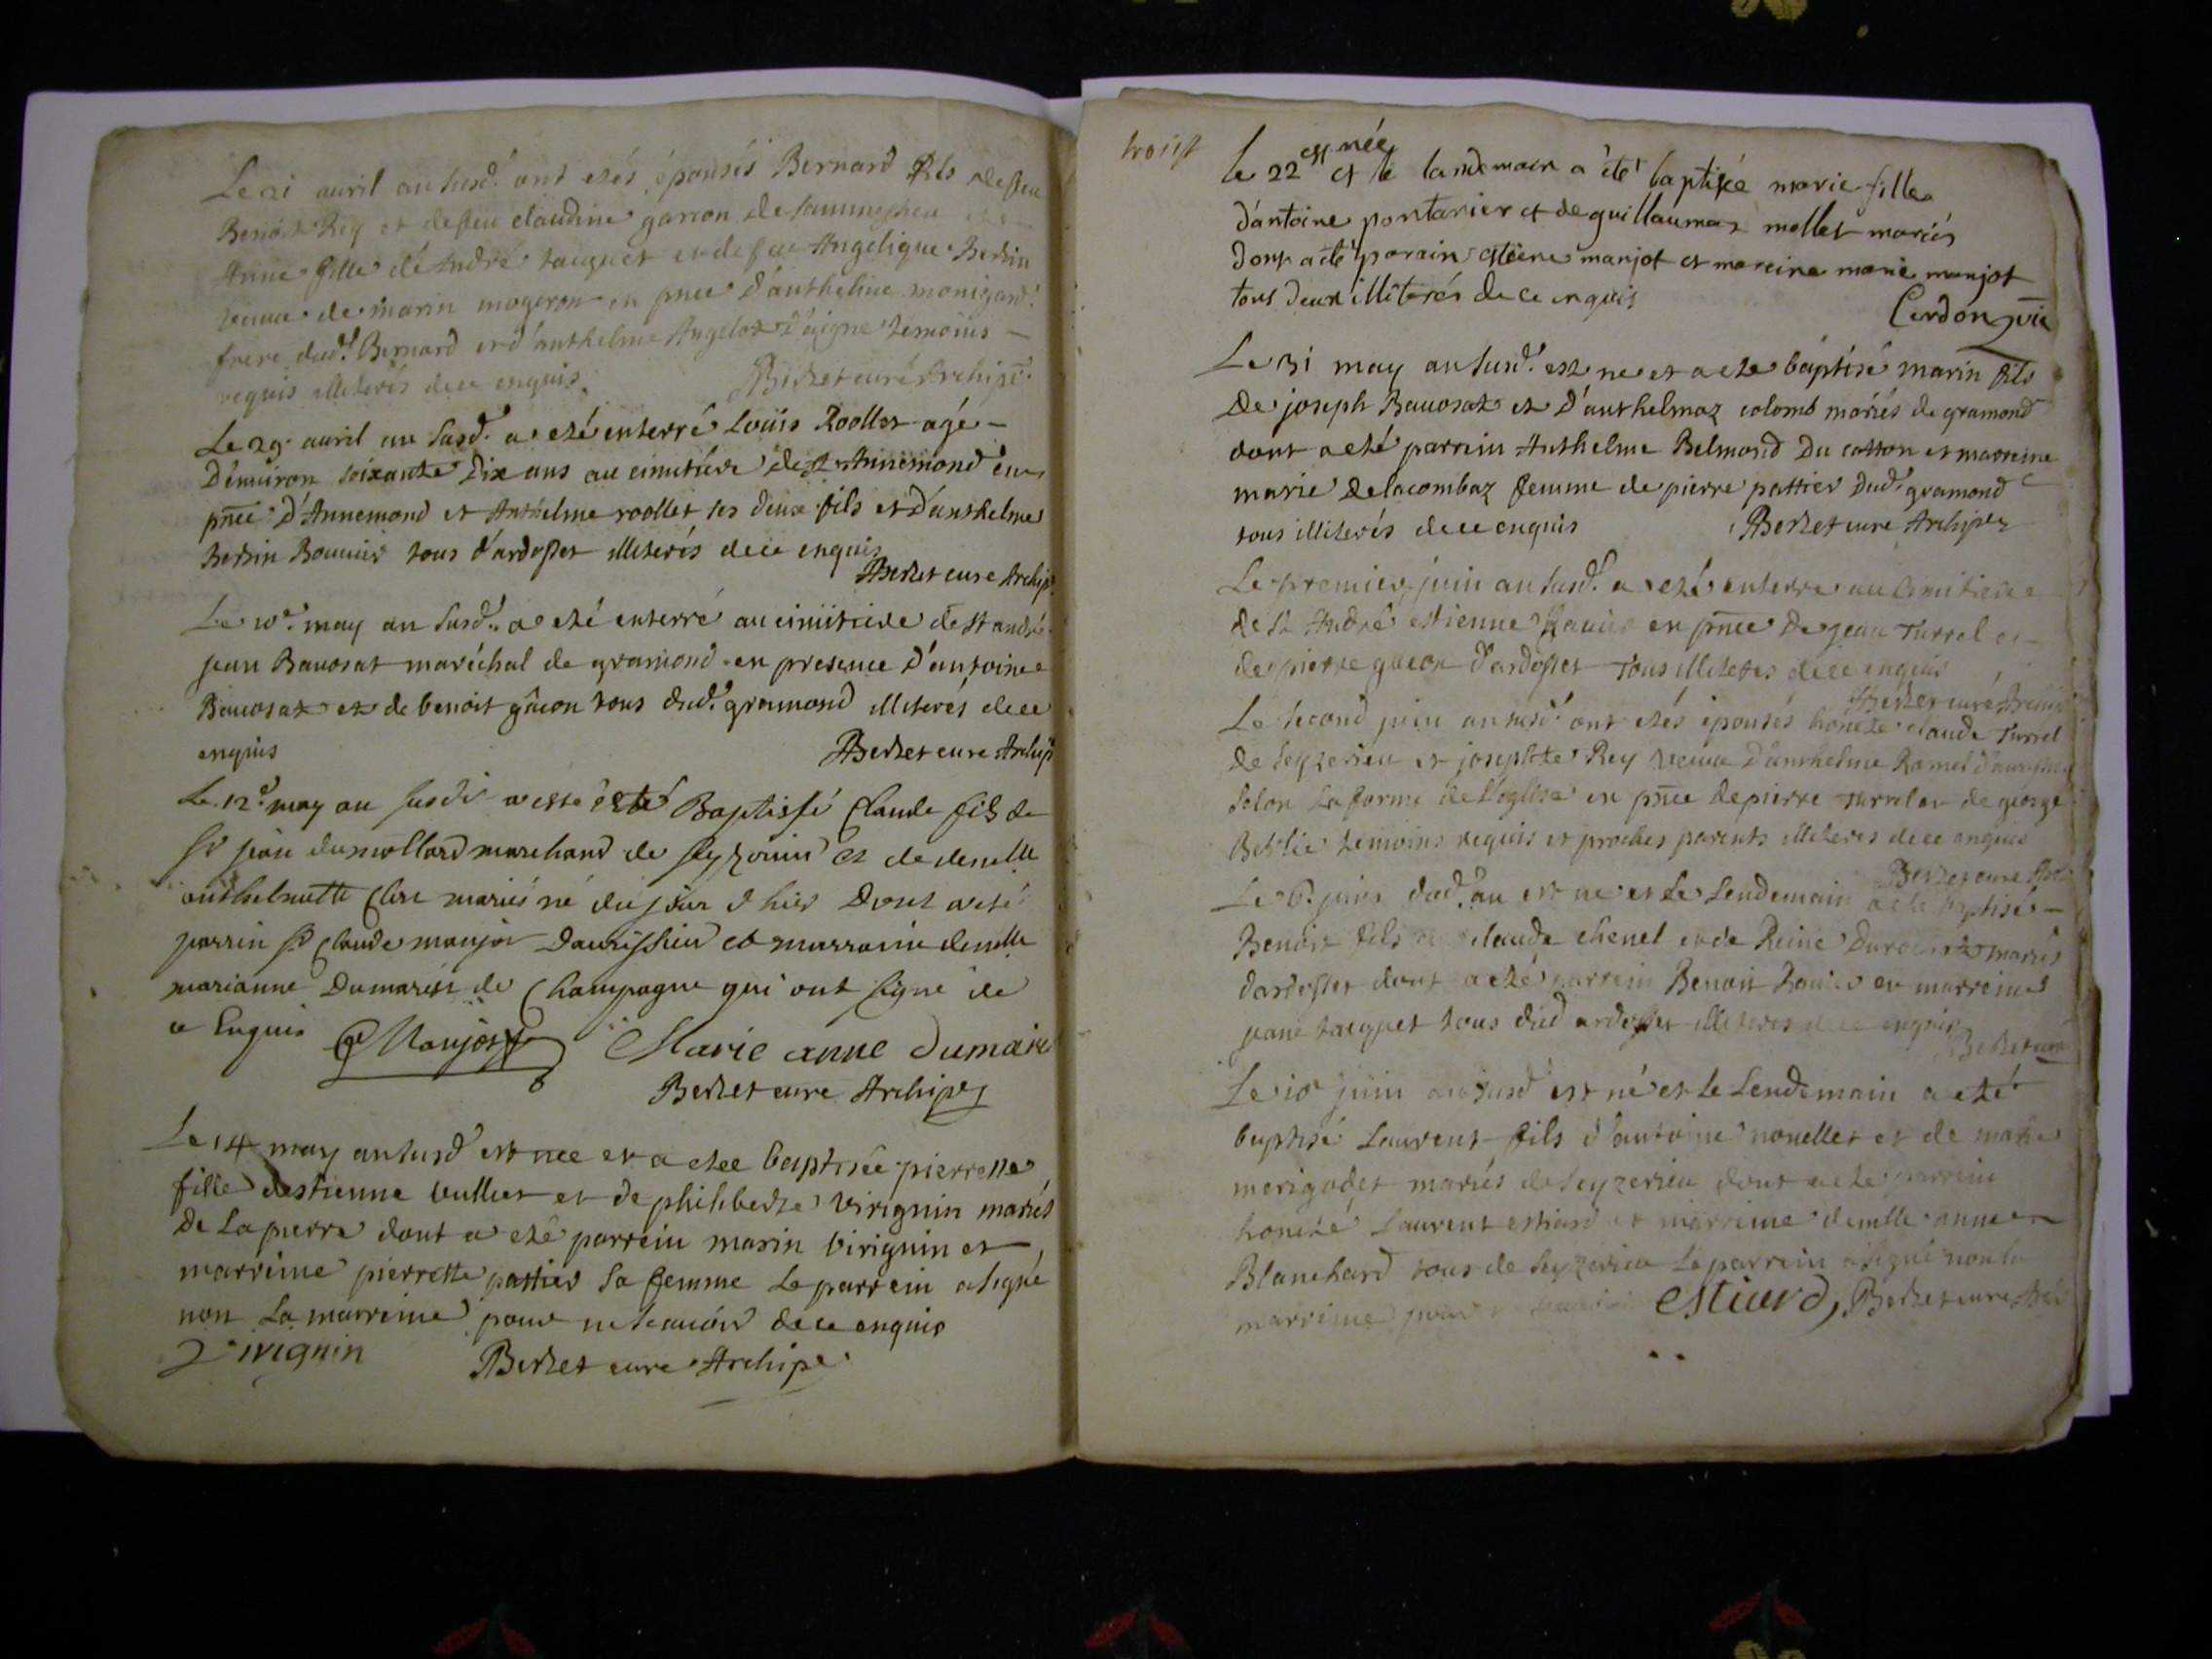 Le 21 avril an susd.t ont etés épousés Bernard fils de feu
Benoit Rey et de feu claudine garcon de
Anne fille de André tacquet et de feu Angelique Bertin
veuve de marin mogeron en pnce d'anthelme monigard
frere dud.t Bernard et d'anthelme Angelot temoins
requis illiterés de ce enquis. Berzet curé Archip.
Le 29. avril an susd.t a eté enterré Loüis Roollet agé
D'environ soixante Dix ans au cimitiére de St Annemond en
pnce D'Annemond et Anthelme roollet ses deux fils et d'anthelme
Bertin Bouvier tous d'ardosset illiterés de ce enquis
Berzet cure Archip.
Le 10e. may an susd.t a eté enterré au cimitiere de St andré
jean Bavosat maréchal de gramond en presence D'antoine
Bavosat et de benoit gâcon tous dud.t gramond illiterés de ce
enquis Berzet cure Archip
Le 12e. may an susdit a esté Baptissé Claude fils de
Sr jean dumollard marchand de et de demelle
anthelmette Clerc mariés né du jour d'hier Dont a eté
parrin Sr Claude monjot Daurissieu et marraine demelle
marianne Dumarest de Champagne qui ont signé de
ce Enquis C Monjot Marie anne dumare
Berzet cure Archip
Le 14 may an susd.t est nee et a etee baptisée pierrette
fille destienne vulliet et de philiberte virignin mariés
de La pierre dont a eté parrein marin virignin et
marreine pierrette pattier sa femme Le parrein a signé
non La marreine pour ne scavoir de ce enquis
Virignin Berzet cure Archip
Le 22 est née et le landemain a été baptisée marie fille
d'antoine pontanier et de guillaumaz mollet mariés
dont a été parain estiene manjot et mareine marie manjot
tous deux illiterés de ce enquis
Cerdon vic
Le 31 may an susd.t est ne et a ete baptisé marin fils
De joseph Bavosat et D'anthelmaz colomb mariés de gramond
dont a eté parrein Anthelme Belmond Du catton et marreine
marie Delacombaz femme de pierre pattier Dud.t gramond
tous illiterés de ce enquis Berzet cure Archip
Le premier juin an susd.t a eté enterre au Cimitiere
de St André estienne en pnce De jean Turrel et
de pierre gacon d'ardosset tous illiteres de ce enquis
Berzet curé Archip
Le second juin an susd.t ont etés épousés honete claude Turrel
de seyzerieu et josephte Rey veuve D'anthelme Ramel
selon La forme de L'église en pnce de pierre turrel et de george
temoins requis et proches parents illiteres de ce enquis
Berzet cure Arch
Le 6. juin dud.t an est ne et Le Lendemain a ete baptisé
Benoit fils de claude chenel et de Reine mariés
dardosset dont a eté parrein Benoit et marreine
jeane tacquet tous dud ardosset illiteres de ce enquis
Berzet cure
Le 10e juin an susd est né et Le Lendemain a eté
baptisé Laurent fils d'antoine novellet et de marie
merigodet mariés de seyzerieu dont a ete parrein
honeté Laurent estiard et marreine demelle anne
Blanchard tous de seyzerieu Le parrein a signé non la
marreine pour estiard, Berzet cure Arch